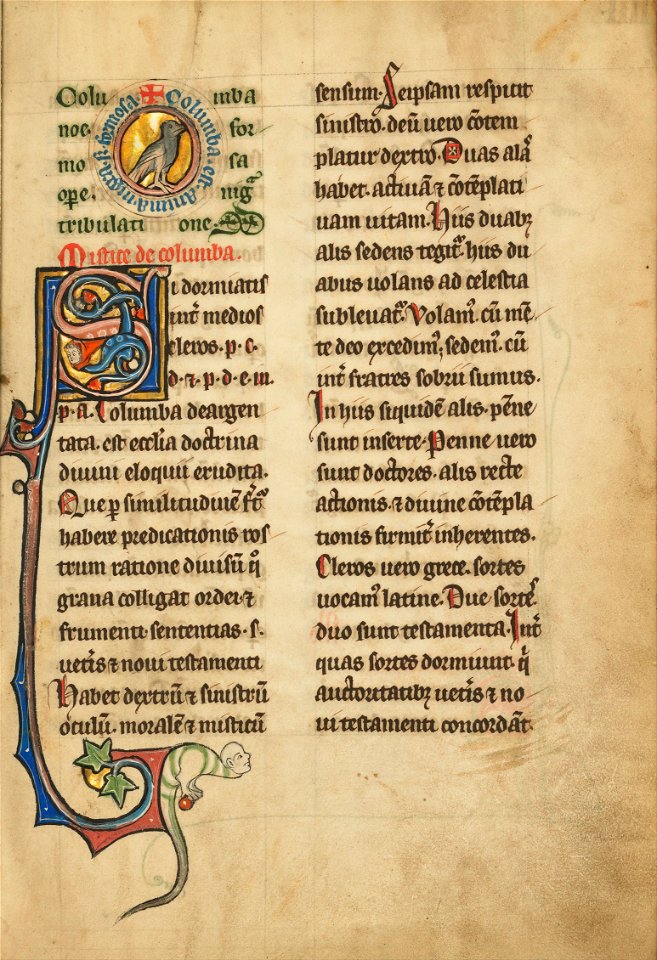 Colu mba
noe. for
mo sa
ope. nigᷓ
tribulati one.
Columba. est. anima nigra. s. formosa.
Mistice de columba.
Si dormiatis
int᷑ medios
cleros. p. c.
d. ⁊ p. d. e. in.
p. a. Columba deargen
tata. est eccl̄ia doctrina
diuini eloquii erudita.
Que ꝑ similitudinē f᷑t᷑
habere predicationis ros
trum ratione diuisū qͦ
grana colligat ordei ⁊
frumenti sententias. s.
uet᷑is ⁊ noui testamenti
Habet dextrū ⁊ sinistrū
oculum. moralē ⁊ misticū
sensum. Seipsam respicit
sinistro. deū uero cōtem
platur dextro. Duas alaˢ
habet. actiuā ⁊ cōtēplati
uam uitam. Hiis duabꝫ
alis sedens tegit᷑. hiis du
abus uolans ad celestia
subleuat᷑. Volamꝰ. cū mē
te deo excedimꝰ; sedemꝰ. cū
int᷑ fratres sobrii sumus.
In hiis siquidem alis. pēne
sunt inserte. Penne uero
sunt doctores. alis recte
actionis. ⁊ diuine cōtēpla
tionis firmit᷑ inherentes.
Cleros uero grece. sortes
uocamꝰ latine. Due sorteˢ.
duo sunt testamenta. Int᷑
quas sortes dormiunt. q̇
auctoritatibꝫ uet᷑is ⁊ no
ui testamenti concordāt.